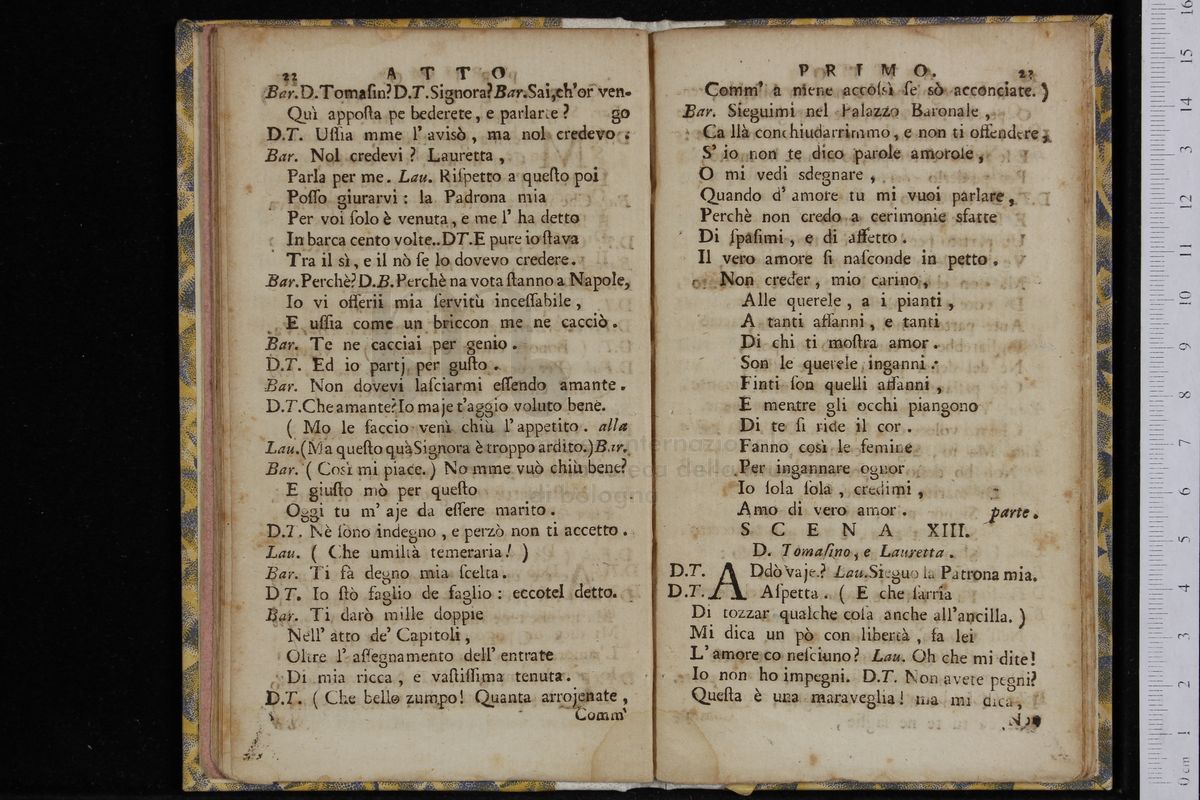 22 ATTO
Bar.D.Tomaſin?D.T.Signora?Bar.Sai,ch'or ven-
Quì appoſta pe bederete, e parlarte? go
D.T. Uſſia mme l'avisò, ma nol credevo.
Bar. Nol credevi? Lauretta,
Parla per me. Lau. Riſpetto a queſto poi
Poſſo giurarvi: la Padrona mia
Per voi ſolo è venuta, e me l'ha detto
In barca cento volte..DT.E pure io ſtava
Tra il sì, e il nò ſe lo dovevo credere.
Bar.Perchè?D.B.Perchè na vota ſtanno a Napole,
Io vi offerii mia ſervitù inceſſabile,
E uſſia come un briccon me ne cacciò.
Bar. Te ne cacciai per genio.
D.T. Ed io partj per guſto.
Bar. Non dovevi laſciarmi eſſendo amante.
D.T.Che amante?Io maje t'aggio voluto bene.
( Mo le faccio venì chiù l'appetito. alla
Lau.(Ma queſto quà Signora è troppo ardito.)Bar.
Bar. ( Così mi piace. ) No mme vuò chiù bene?
E giuſto mò per queſto
Oggi tu m'aje da eſſere marito.
D.T. Nè ſono indegno, e perzò non ti accetto.
Lau. ( Che umiltà temeraria! )
Bar. Ti fà degno mia ſcelta.
D T. Io ſtò ſaglio de ſaglio: eccotel detto.
Bar. Ti darò mille doppie
Nell' atto de' Capitoli,
Oltre l'aſſegnamento dell' entrate
Di mia ricca, e vaſtiſſima tenuta.
D.T. ( Che bello zumpo! Quanta arrojenate,
Comm'
PRIMO. 23
Comm' a mene accoſsì ſe sò acconciate. )
Bar. Sieguimi nel Palazzo Baronale,
Ca llà conchiudarrimmo, e non ti offendere,
S'io non te dico parole amoroſe,
O mi vedi sdegnare,
Quando d'amore tu mi vuoi parlare,
Perchè non credo a cerimonie sfatte
Di ſpaſimi, e di affetto.
Il vero amore ſi naſconde in petto.
Non creder, mio carino,
Alle querele, a i pianti,
A tanti affanni, e tanti
Di chi ti moſtra amor.
Son le querele inganni:
Finti ſon quelli affanni,
E mentre gli occhi piangono
Di te ſi ride il cor.
Fanno così le femine
Per ingannare ognor
Io ſola ſola, credimi,
Amo di vero amor. parte.
SCENA XIII.
D. Tomaſino, e Lauretta.
D.T. ADdò vaje? Lau.Sieguo la Patrona mia.
D.T. Aſpetta. ( E che ſarria
Di tozzar qualche coſa anche all'ancilla. )
Mi dica un pò con libertà, fa lei
L'amore co neſciuno? Lau. Oh che mi dite!
Io non ho impegni. D.T. Non avete pegni?
Queſta è una maraveglia! ma mi dica,